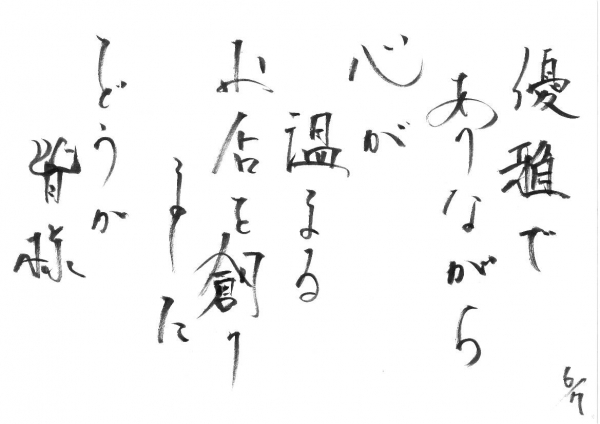 優雅で
ありながら
心が
温まる
お店を創り
ました
どうか
皆様
6/7